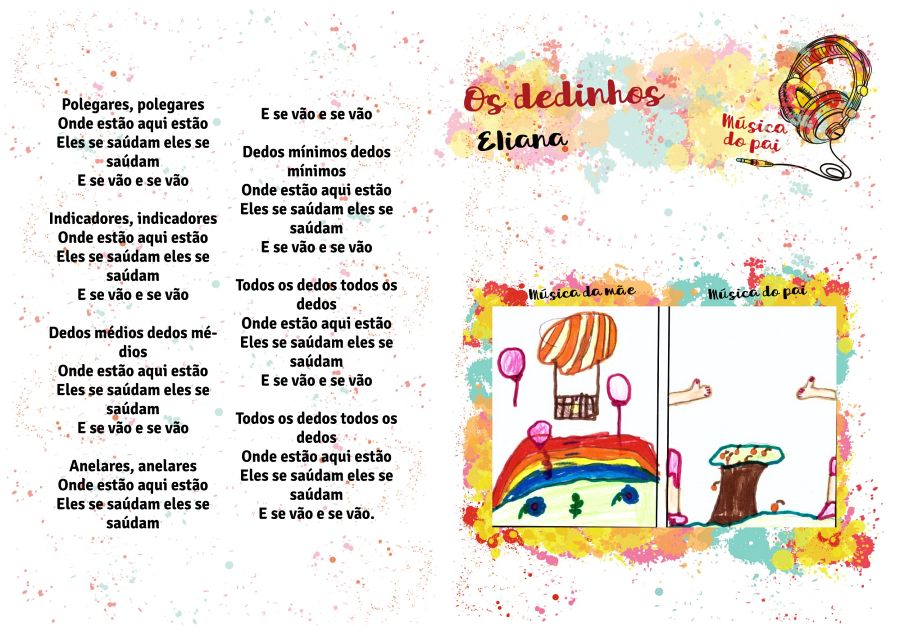 Polegares, polegares
Onde estão aqui estão
Eles se saúdam eles se
saúdam
E se vão e se vão
Indicadores, indicadores
Onde estão aqui estão
Eles se saúdam eles se
saúdam
E se vão e se vão
Dedos médios dedos mé-
dios
Onde estão aqui estão
Eles se saúdam eles se
saúdam
E se vão e se vão
Anelares, anelares
Onde estão aqui estão
Eles se saúdam eles se
saúdam
E se vão e se vão
Dedos mínimos dedos
mínimos
Onde estão aqui estão
Eles se saúdam eles se
saudam
E se vão e se vão
Todos os dedos todos os
dedos
Onde estão aqui estão
Eles se saúdam eles se
saúdam
E se vão e se vão
Todos os dedos todos os
dedos
Onde estão aqui estão
Eles se saúdam eles se
saúdam
E se vão e se vão.
Os dedinhos
Eliana
Música
do pai
Música da mãe
Música do pai